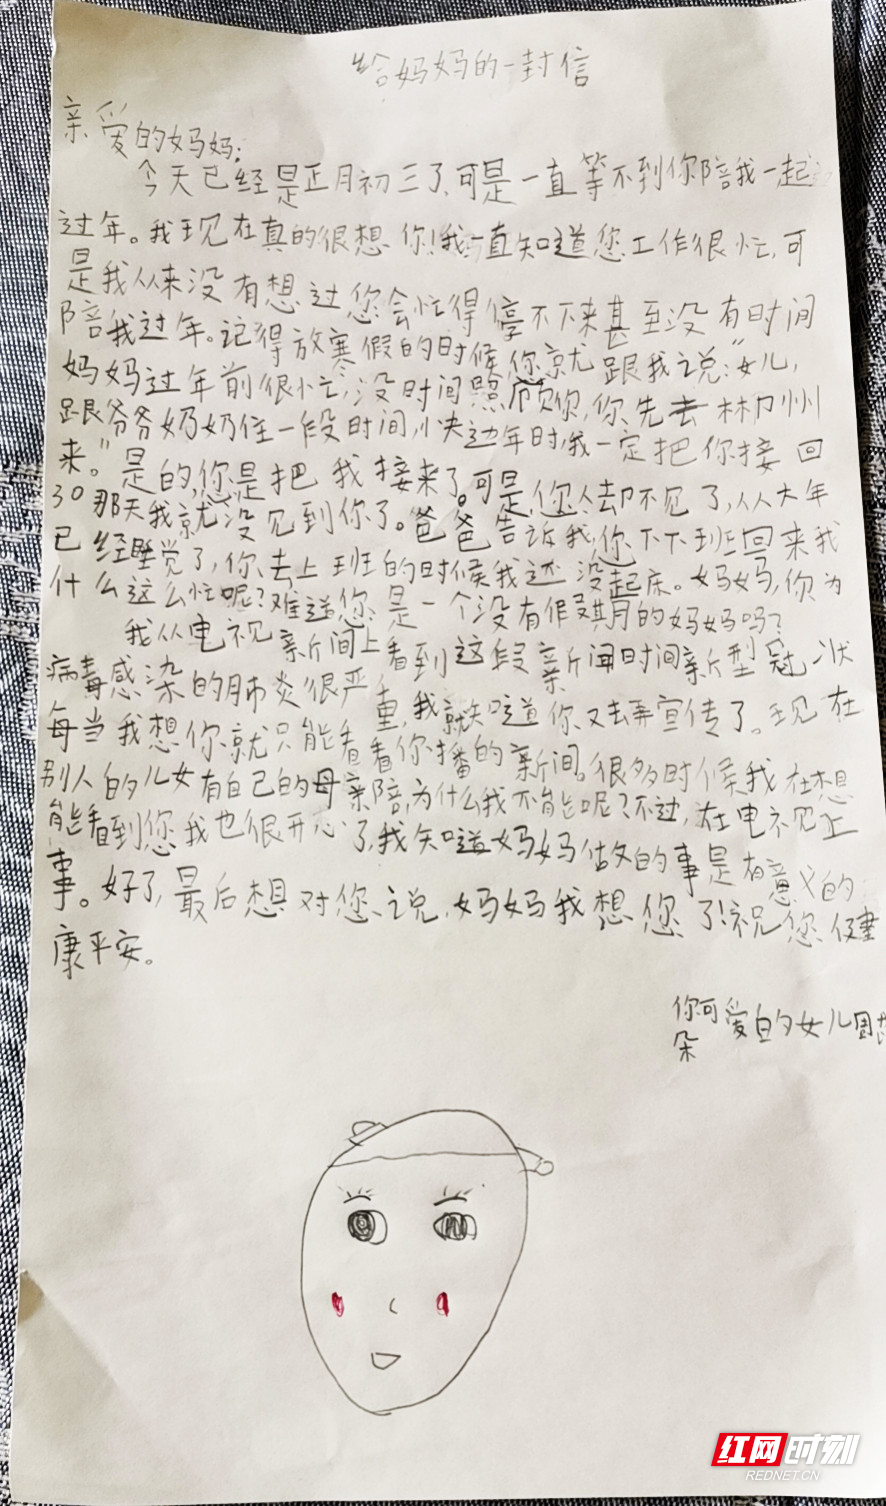 给妈妈的一封信
亲爱的妈妈:
今天已经是正月初三了,可是一直等不到你陪我一起
过年。我现在真的很想你!我一直知道您工作很忙,可
是我从来没有想过您会忙得停不下来甚至没有时间
陪我过年。记得放寒假的时候你就跟我说:"女儿,
妈妈过年前很忙,没时间照顾你,你先去郴州
跟爷爷奶奶住一段时间,快过年时,我一定把你接回
来。"是的,您是把我接来了。可是,您却不见了,从大年
30那天我就没见到你了。爸爸告诉我,您下班回来我
已经睡觉了,你去上班的时候我还没起床。妈妈,你为
什么这么忙呢?难道您是一个没有假期的妈妈吗?
我从电视新闻上看到这段新闻时间新型冠状
病毒感染的肺炎很严重,我就知道你又去弄宣传了。现在
每当我想你就只能看看你播的新闻。很多时候我在想
别人的儿女有自己的母亲陪,为什么我不能呢?不过,在电视上
能看到您我也很开心了,我知道妈妈做的事是有意义的
事。好了,最后想对您说,妈妈我想您了!祝您健
康平安。
你可爱的女儿
朵
红网时刻
REDNET.CN